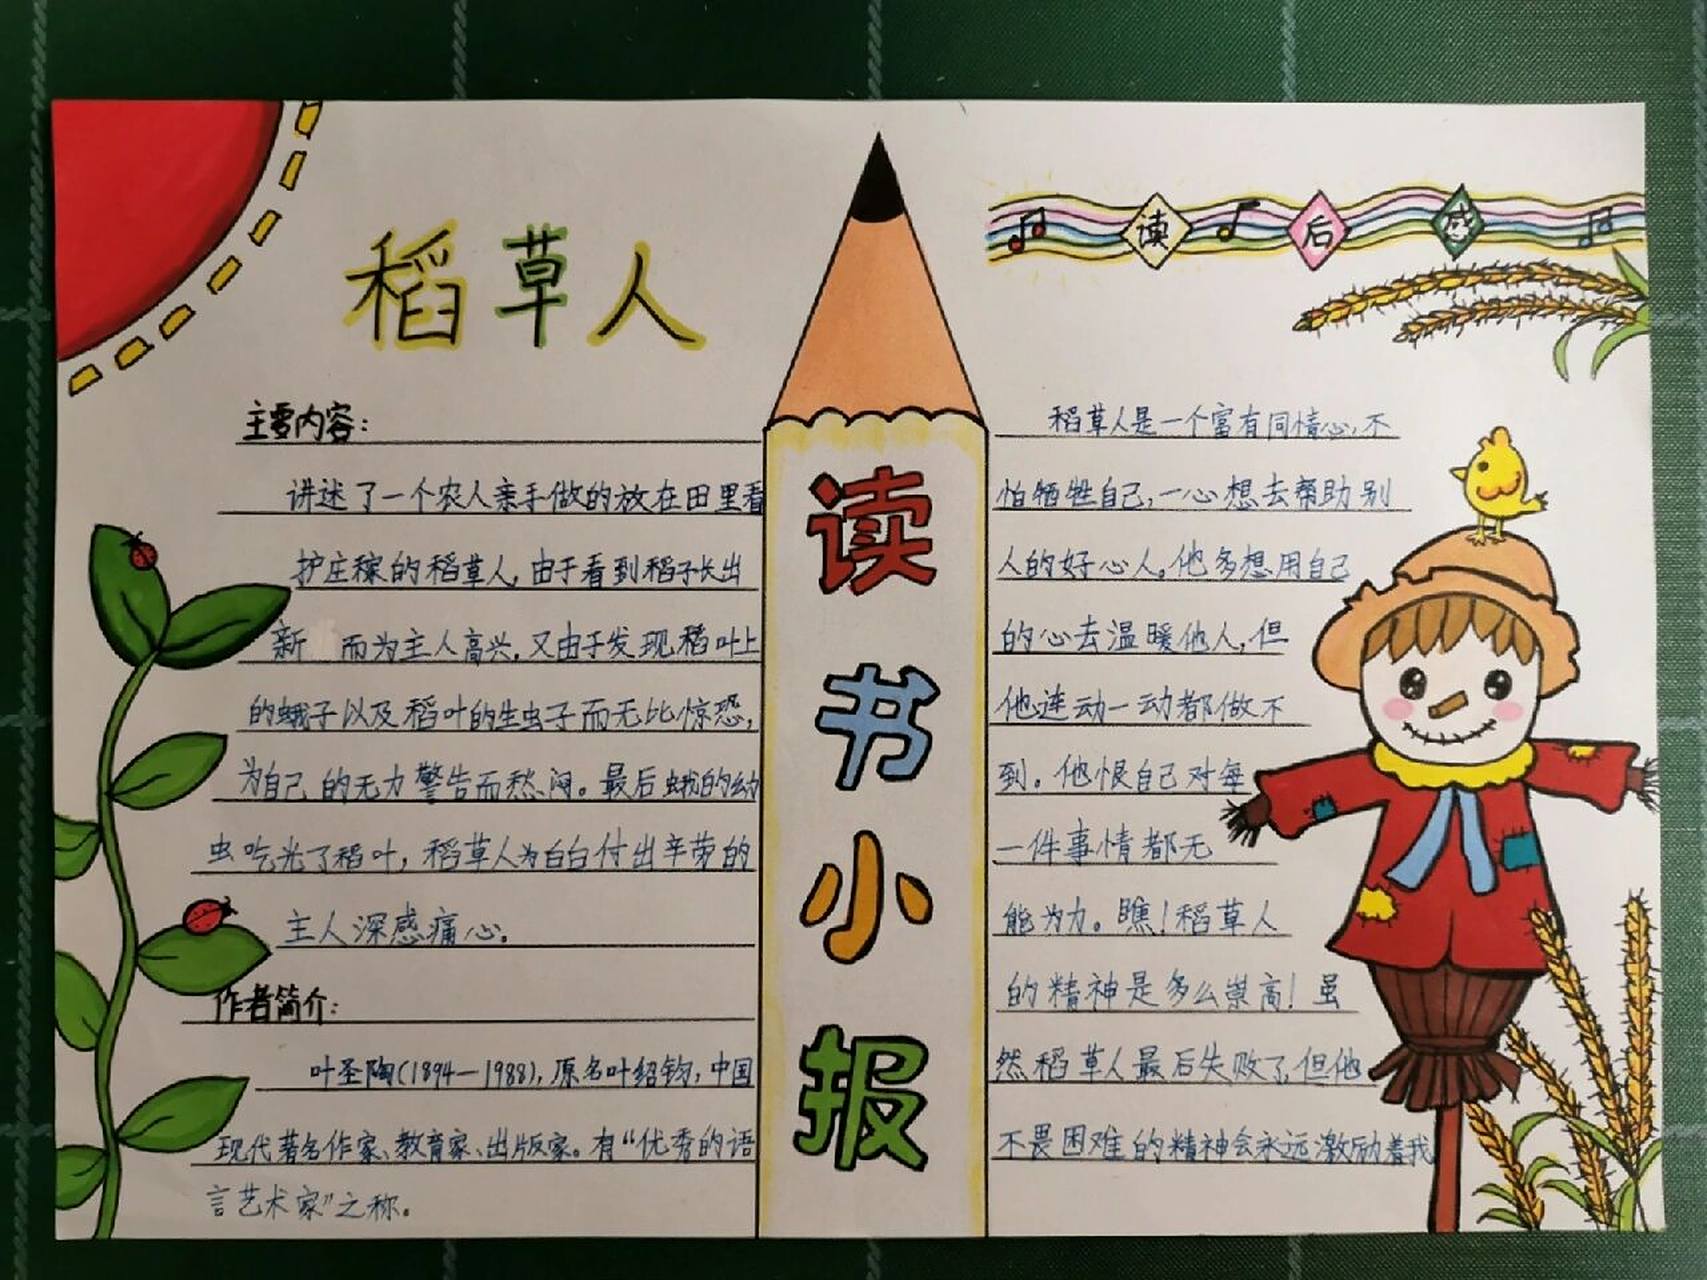 稻草人
主要内容:
讲述了一个农人亲手做的放在田里看
护庄稼的稻草人,由于看到稻子长出
新 而为主人高兴,又由于发现稻叶上
的蛾子以及稻叶的生虫子而无比惊恐,
为自己的无力警告而愁闷。最后蛾的幼
虫吃光了稻叶,稻草人为白白付出辛劳的
主人深感痛心。
作者简介:
叶圣陶(1894—1988),原名叶绍钧,中国
现代著名作家、教育家、出版家。有“优秀的语
言艺术家”之称。
读书小报
读后感
稻草人是一个富有同情心,不
怕牺牲自己,一心想去帮助别
人的好心人。他多想用自己
的心去温暖他人,但
他连动一动都做不
到。他恨自己对每
一件事情都无
能为力。瞧!稻草人
的精神是多么崇高!虽
然稻草人最后失败了,但他
不畏困难的精神会永远激励着我